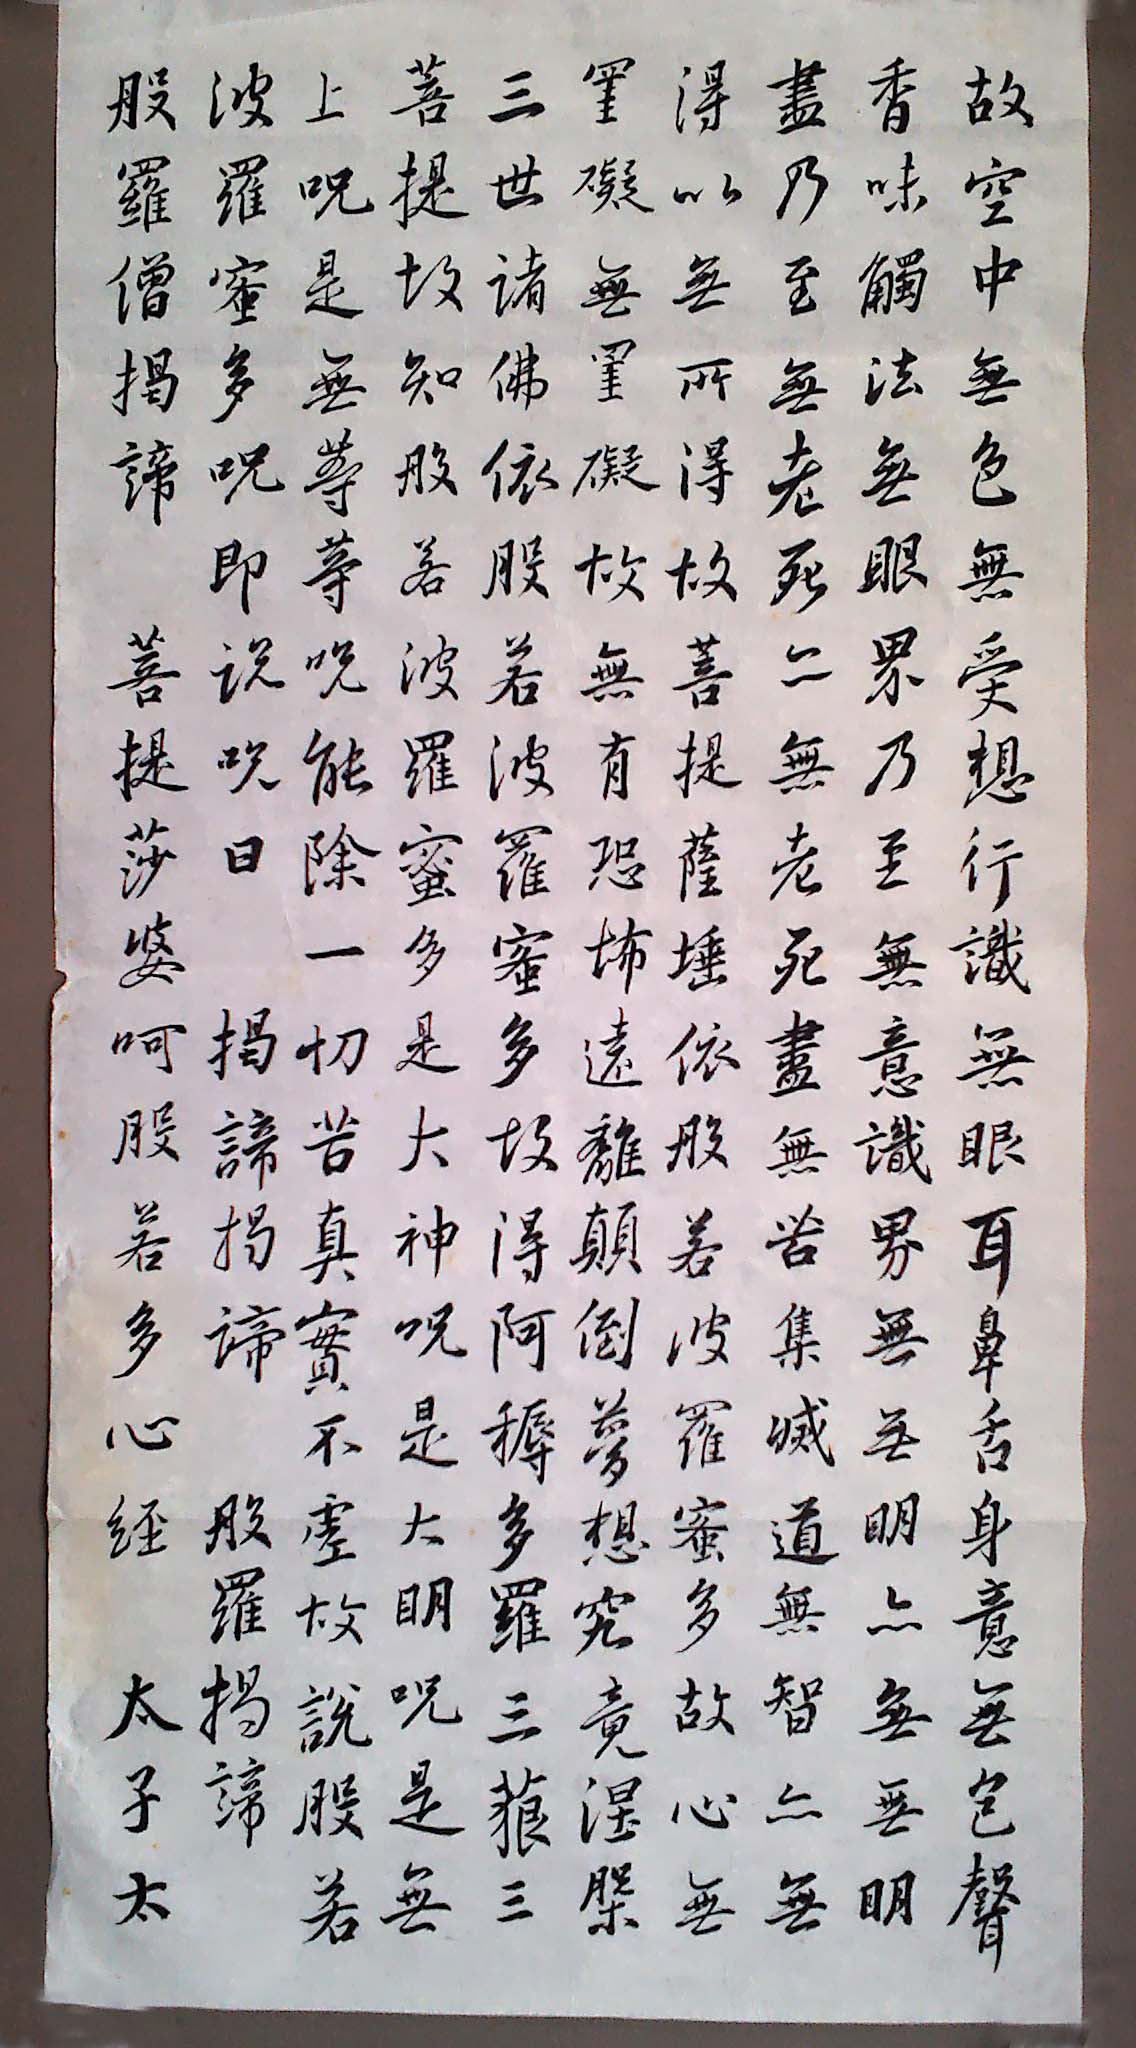 故空中無色無受想行識無眼耳鼻舌身意無色聲
香味觸法無眼界乃至無意識界無無明亦無無明
盡乃至無老死亦無老死盡無苦集滅道無智亦無
得以無所得故菩提薩埵依般若波羅蜜多故心無
罣礙無罣礙故無有恐怖遠離顛倒夢想究竟涅槃
三世諸佛依般若波羅蜜多故得阿耨多羅三藐三
菩提故知般若波羅蜜多是大神呪是大明呪是無
上呪是無等等呪能除一切苦真實不虛故說般若
波羅蜜多呪即説呪曰 揭諦揭諦 般羅揭諦
般羅僧揭諦 菩提莎婆呵般若多心経 太子太